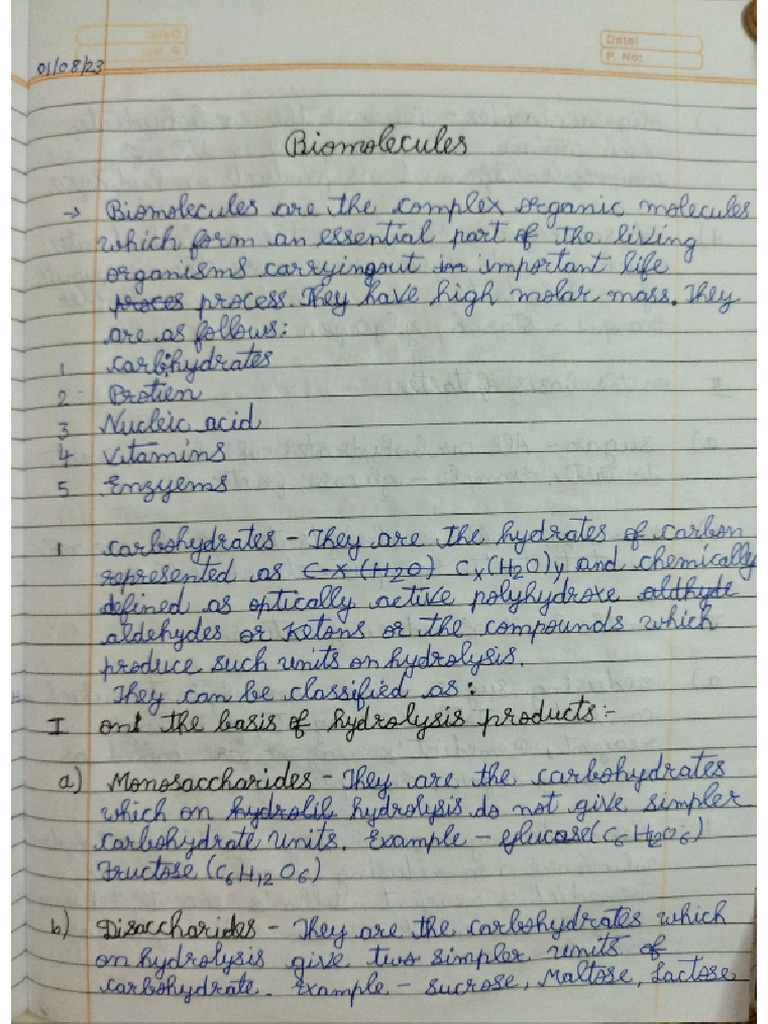 Date:
P. No:
01/08/23
Biomolecules
→ Biomolecules are the complex organic molecules
which form an essential part of the living
organisms carryingout in important life
proces process. They have high molar mass. They
are as follows:
1 Carbihydrates
2 Protien
3 Nucleic acid
4 Vitamins
5 Enzyems
1 Carbohydrates - They are the hydrates of carbon
represented as C-X (H2O) Cx(H2O)y and chemically
defined as optically active polyhydroxe aldhyde
aldehydes or Ketons or the compounds which
produce such units on hydrolysis.
They can be classified as:
I ont the basis of hydrolysis products:-
a) Monosaccharides - They are the carbohydrates
which on hydrolil hydrolysis do not give simpler
carbohydrate units. Example - glucose (C6H12O6)
Fructose (C6H12O6)
b) Disaccharides - They are the carbohydrates which
on hydrolysis give two simpler units of
carbohydrate. Example - sucrose, Maltose, Lactose